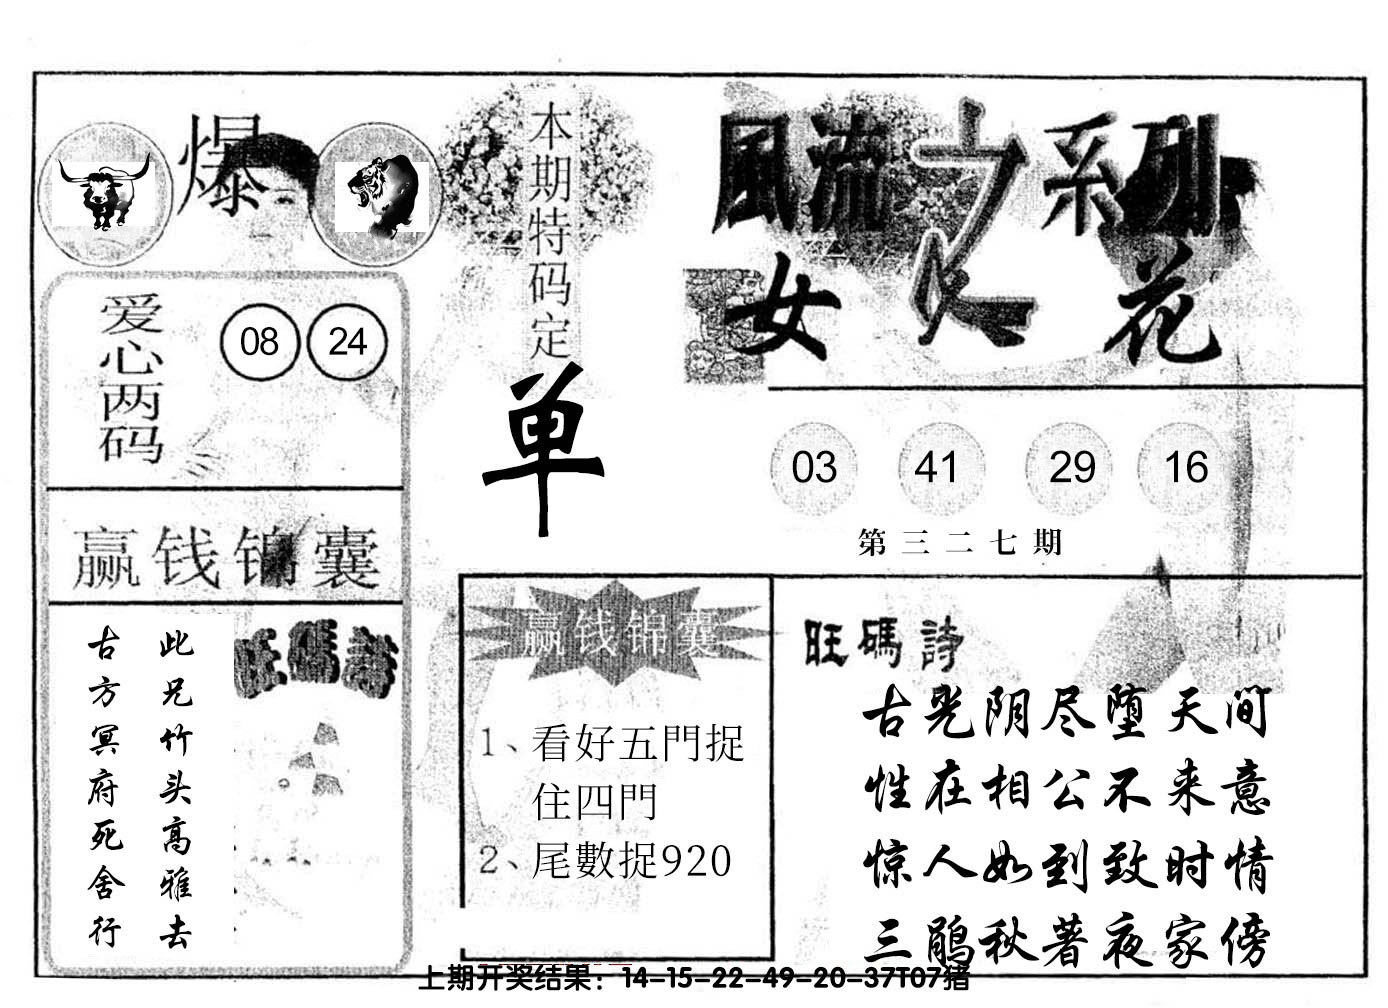 爆
本期特码定
单
風流之系列
女人花
爱心两码
08 24
03 41 29 16
第三二七期
赢钱锦囊
旺碼詩
此兄竹头高雅去
古方冥府死舍行
赢钱锦囊
1、看好五門捉
住四門
2、尾數捉920
旺碼詩
古光阴尽堕天间
性在相公不来意
惊人如到致时情
三鹃秋著夜家傍
上期开奖结果：14-15-22-49-20-37T07猪